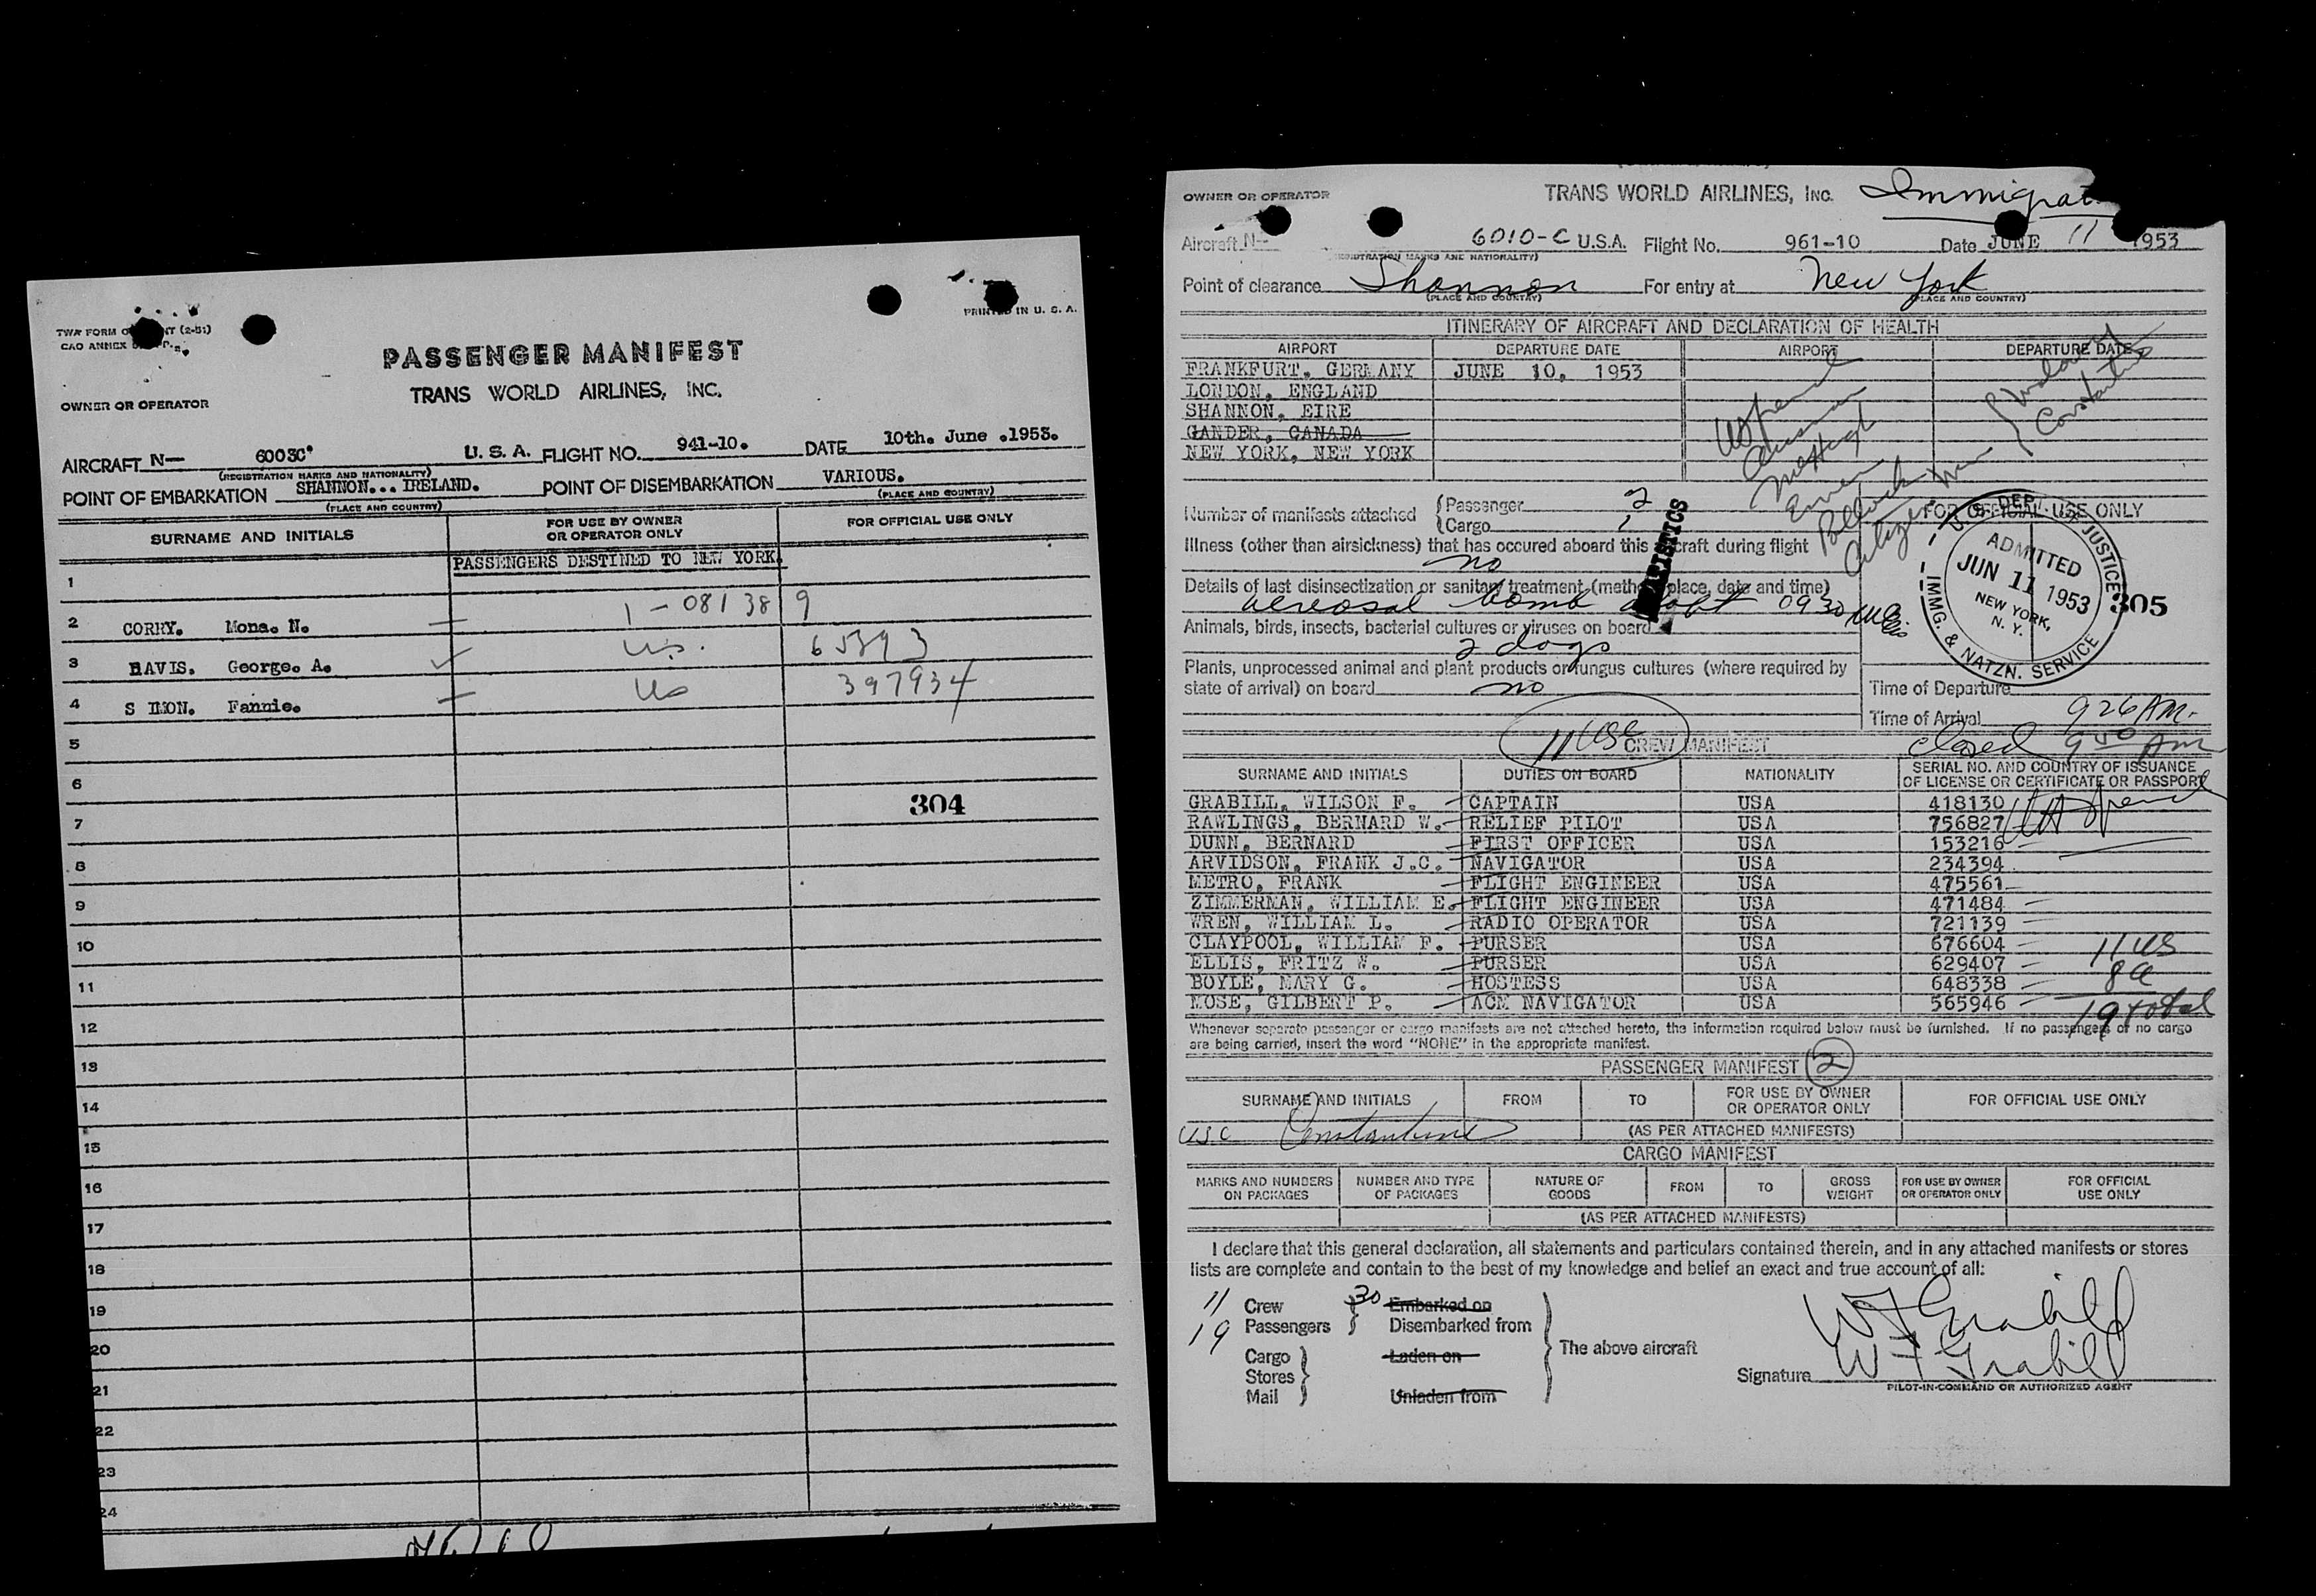 TWA FORM
CAO ANNEX
PRINTED IN U. S. A.
PASSENGER MANIFEST
TRANS WORLD AIRLINES, INC.
OWNER OR OPERATOR
AIRCRAFT N— 6003C U. S. A. FLIGHT NO. 941-10. DATE 10th. June .1953.
(REGISTRATION MARKS AND NATIONALITY)
POINT OF EMBARKATION SHANNON... IRELAND. POINT OF DISEMBARKATION VARIOUS.
(PLACE AND COUNTRY) (PLACE AND COUNTRY)
SURNAME AND INITIALS FOR USE BY OWNER OR OPERATOR ONLY FOR OFFICIAL USE ONLY
PASSENGERS DESTINED TO NEW YORK.
1
2 CORRY. Mona. N. 1-081389
3 DAVIS. George. A. U.S. 65393
4 SIMON. Fannie. US 397934
5
6
304
7
8
9
10
11
12
13
14
15
16
17
18
19
20
21
22
23
24
OWNER OR OPERATOR TRANS WORLD AIRLINES, INC.
Aircraft N— 6010-C U.S.A. Flight No. 961-10 Date JUNE 11 1953
(REGISTRATION MARKS AND NATIONALITY)
Point of clearance Shannon For entry at New York
(PLACE AND COUNTRY) (PLACE AND COUNTRY)
ITINERARY OF AIRCRAFT AND DECLARATION OF HEALTH
AIRPORT DEPARTURE DATE AIRPORT DEPARTURE DATE
FRANKFURT, GERMANY JUNE 10, 1953
LONDON, ENGLAND
SHANNON, EIRE
GANDER, CANADA
NEW YORK, NEW YORK
Number of manifests attached Passenger 2
Cargo 1
FOR OFFICIAL USE ONLY
Illness (other than airsickness) that has occured aboard this aircraft during flight
no
Details of last disinsectization or sanitary treatment (method, place, date and time)
aereosal bomb 0930
Animals, birds, insects, bacterial cultures or viruses on board
2 dogs
Plants, unprocessed animal and plant products or fungus cultures (where required by
state of arrival) on board no
U.S. DEPT. OF JUSTICE
ADMITTED
JUN 11 1953
NEW YORK,
N. Y.
IMMG. & NATZN. SERVICE
305
Time of Departure
Time of Arrival 926 AM.
closed 9 50 AM
11 USC
CREW MANIFEST
SURNAME AND INITIALS DUTIES ON BOARD NATIONALITY SERIAL NO. AND COUNTRY OF ISSUANCE OF LICENSE OR CERTIFICATE OR PASSPORT
GRABILL, WILSON F. CAPTAIN USA 418130
RAWLINGS, BERNARD W. RELIEF PILOT USA 756827
DUNN, BERNARD FIRST OFFICER USA 153216
ARVIDSON, FRANK J.C. NAVIGATOR USA 234394
METRO, FRANK FLIGHT ENGINEER USA 475561
ZIMMERMAN, WILLIAM E. FLIGHT ENGINEER USA 471484
WREN, WILLIAM L. RADIO OPERATOR USA 721139
CLAYPOOL, WILLIAM F. PURSER USA 676604 11 US
ELLIS, FRITZ W. PURSER USA 629407 8a
BOYLE, MARY G. HOSTESS USA 648338
MOSE, GILBERT P. ACM NAVIGATOR USA 565946 19 total
Whenever separate passenger or cargo manifests are not attached hereto, the information required below must be furnished. If no passengers or no cargo
are being carried, insert the word "NONE" in the appropriate manifest.
PASSENGER MANIFEST 2
SURNAME AND INITIALS FROM TO FOR USE BY OWNER OR OPERATOR ONLY FOR OFFICIAL USE ONLY
USC Constantine (AS PER ATTACHED MANIFESTS)
CARGO MANIFEST
MARKS AND NUMBERS ON PACKAGES NUMBER AND TYPE OF PACKAGES NATURE OF GOODS FROM TO GROSS WEIGHT FOR USE BY OWNER OR OPERATOR ONLY FOR OFFICIAL USE ONLY
(AS PER ATTACHED MANIFESTS)
I declare that this general declaration, all statements and particulars contained therein, and in any attached manifests or stores
lists are complete and contain to the best of my knowledge and belief an exact and true account of all:
11 Crew 30 Embarked on
19 Passengers Disembarked from
Cargo Laden on The above aircraft
Stores
Mail Unladen from
W F Grabill
Signature W F Grabill
PILOT-IN-COMMAND OR AUTHORIZED AGENT